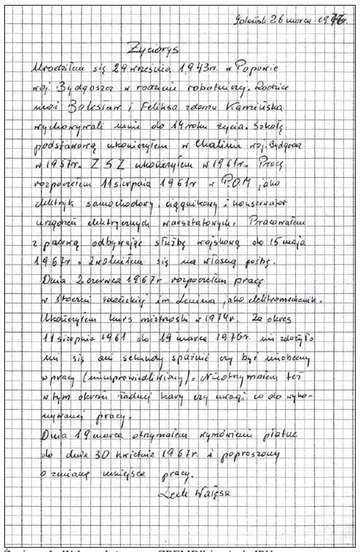 Gdańsk 26 marca 1976r.
Życiorys
Urodziłem się 29 września 1943r. w Popowie
woj Bydgoszcz w rodzinie robotniczej. Rodzice
moi Bolesław i Feliksa zdomu Kamińska
wychowywali mnie do 14 roku życia. Szkołę
podstawową ukończyłem w Chalinie woj. Bydgoszcz
w 1957r. ZSZ ukończyłem w 1961r. Pracę
rozpocząłem 11 sierpnia 1961r w P.O.M jako
elektryk samochodowy, ciągnikowy i konserwator
urządzeń elektrycznych warsztatowych. Pracowałem
z przerwą odbywając służbę wojskową do 15 maja
1967r. Zwolniłem się na własną prośbę.
Dnia 2 czerwca 1967r rozpocząłem pracę
w stoczni Gdańskiej im Lenina jako elektromechanik.
Ukończyłem kurs mistrzoski w 1974r. Za okres
11 sierpnia 1961 do 19 marca 1976r. nie zdarzyło
mi się ani sekundy spaźnić czy być nieobecny
w pracy (nieusprawiedliwiony). Nieotrzymałem też
w tym okresie żadnej kary czy uwagi co do wyko-
nywanej pracy.
Dnia 19 marca otrzymałem wymówienie płatne
do dnia 30 kwietnia 1967r. i poproszony
o zmianę miejsca pracy.
Lech Wałęsa